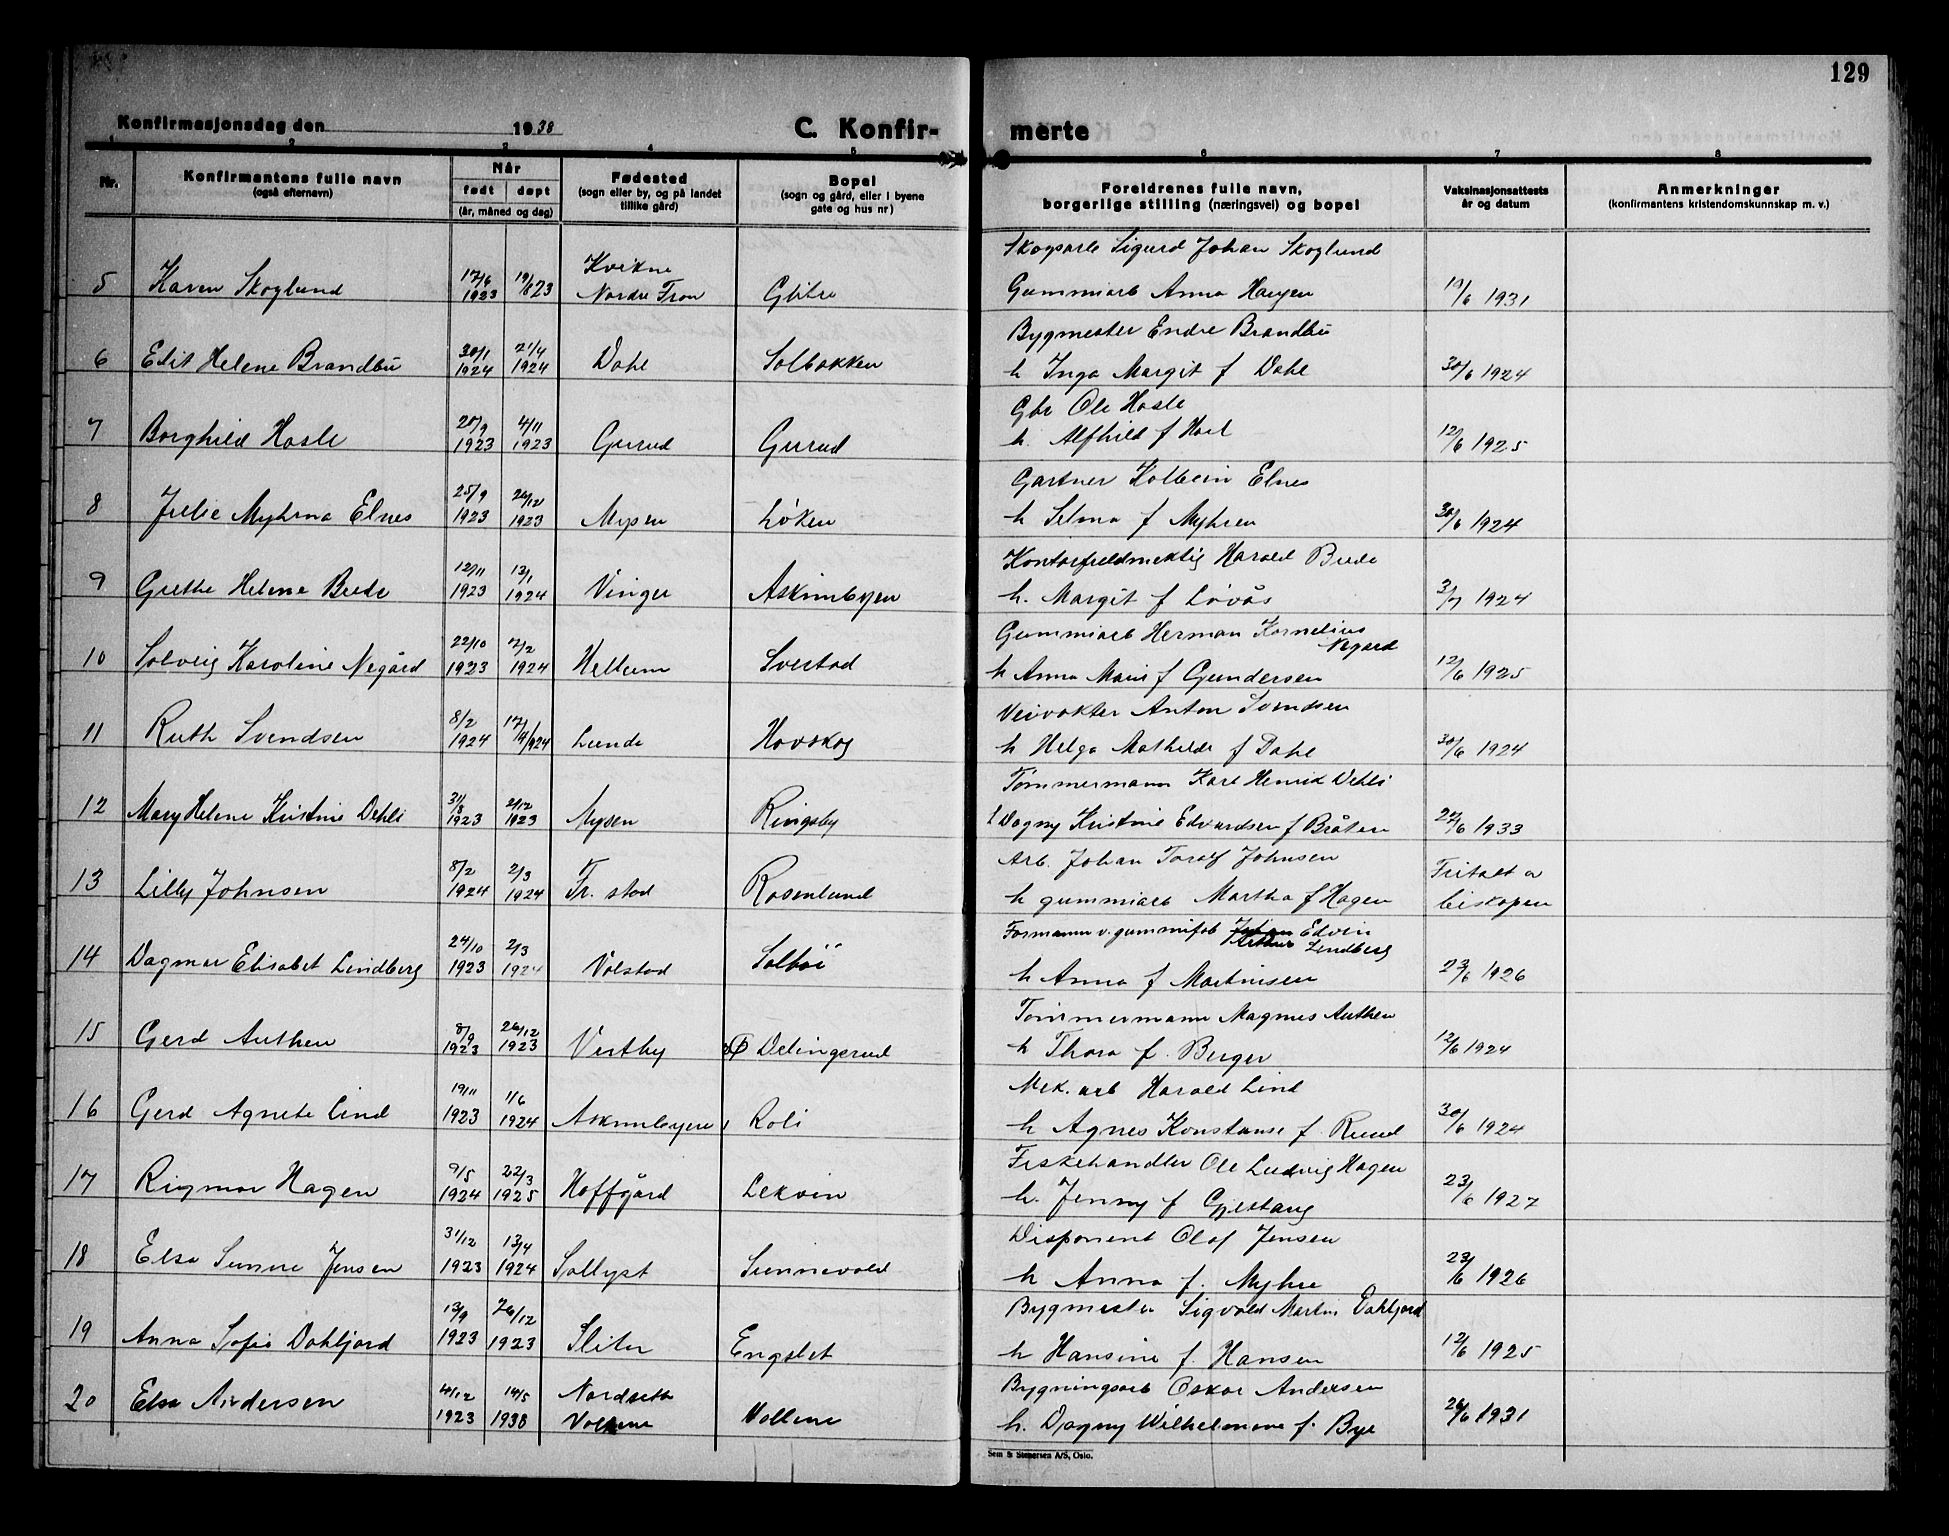 129
Konfirmasjonsdag den 1938 C. Konfir- merte
1 2 3 4 5 6 7 8
Nr. Konfirmantens fulle navn (også efternavn) Når født døpt (år, måned og dag) Fødested (sogn eller by, og på landet tillike gård) Bopel (sogn og gård, eller i byene gate og hus nr) Foreldrenes fulle navn, borgerlige stilling (næringsvei) og bopel Vaksinasjonsattests år og datum Anmerkninger (konfirmantens kristendomskunnskap m. v.)
Kvikne Skogsarb Sigurd Johan Skoglund
5 Karen Skoglund 17/6 1923 19/8 23 Nordre Fron Glitre Gummiarb Anna Haugen 19/6 1931
Bygmester Endre Brandbu
6 Edit Helene Brandbu 30/1 1924 21/4 1924 Dahl Solbakken h Inga Margit f Dahl 30/6 1924
Gbr Ole Hasle
7 Borghild Hasle 20/9 1923 4/11 1923 Gurud Gurud h. Alfhild f Hoel 12/6 1925
Gartner Kolbein Elnes
8 Julie Myhrna Elnes 25/9 1923 26/12 1923 Mysen Løken h Selma f Myhren 30/6 1924
Kontorfuldmektig Harald Brede
9 Grethe Helene Brede 12/11 1923 13/1 1924 Vinger Askimbyen h. Margit f Løvås 3/7 1924
Gummiarb Herman Kornelius Negård
10 Solveig Karoline Negård 22/10 1923 2/2 1924 Hellum Svestad h Anna Marie f Gundersen 12/6 1925
Veivokter Anton Svendsen
11 Ruth Svendsen 8/2 1924 17/4 1924 Lunde Hovskog h Helga Mathilde f Dahl 30/6 1924
Tømmermann Karl Henrik Dehli
12 Mary Helene Kristine Dehli 31/8 1923 2/12 1923 Mysen Ringsby Dagny Kristine Edvardsen f Bråten 22/6 1933
Arb. Johan Toralf Johnsen Fritatt av
13 Lilly Johnsen 8/2 1924 2/3 1924 Fr. stad Rosenlund h gummiarb Martha f Hagen biskopen
Formann v. gummifab Arthur Edvin Lindberg
14 Dagmar Elisabet Lindberg 24/10 1923 2/3 1924 Volstad Solhøi h Anna f Martinsen 23/6 1926
Tømmermann Magnus Authen
15 Gerd Authen 8/9 1923 26/12 1923 Vestby Ø Delingsrud h Thora f. Berger 12/6 1924
Mek. arb Harald Lind
16 Gerd Agnete Lind 19/11 1923 1/6 1924 Askimbyen Roli h Agnes Konstanse f. Ruud 30/6 1924
Fiskehandler Ole Ludvig Hagen
17 Rigmor Hagen 9/5 1924 22/3 1925 Hoffgård Lekvin h. Jenny f Gjestang 23/6 1927
Disponent Olaf Jensen
18 Elsa Sunne Jensen 31/12 1923 13/4 1924 Sollyst Sunnevold h Anna f. Myhre 23/6 1926
Bygmester Sigvald Martin Dahljord
19 Anna Sofie Dahljord 13/9 1923 26/12 1923 Sliter Engslet h Hansine f. Hansen 12/6 1925
Nordseth Bygningsarb Oskar Andersen
20 Elsa Andersen 4/12 1923 14/5 1938 Vollene Vollene h. Dagny Wilhelmine f. Bye 26/6 1931
Sem & Stenersen A/S, Oslo.